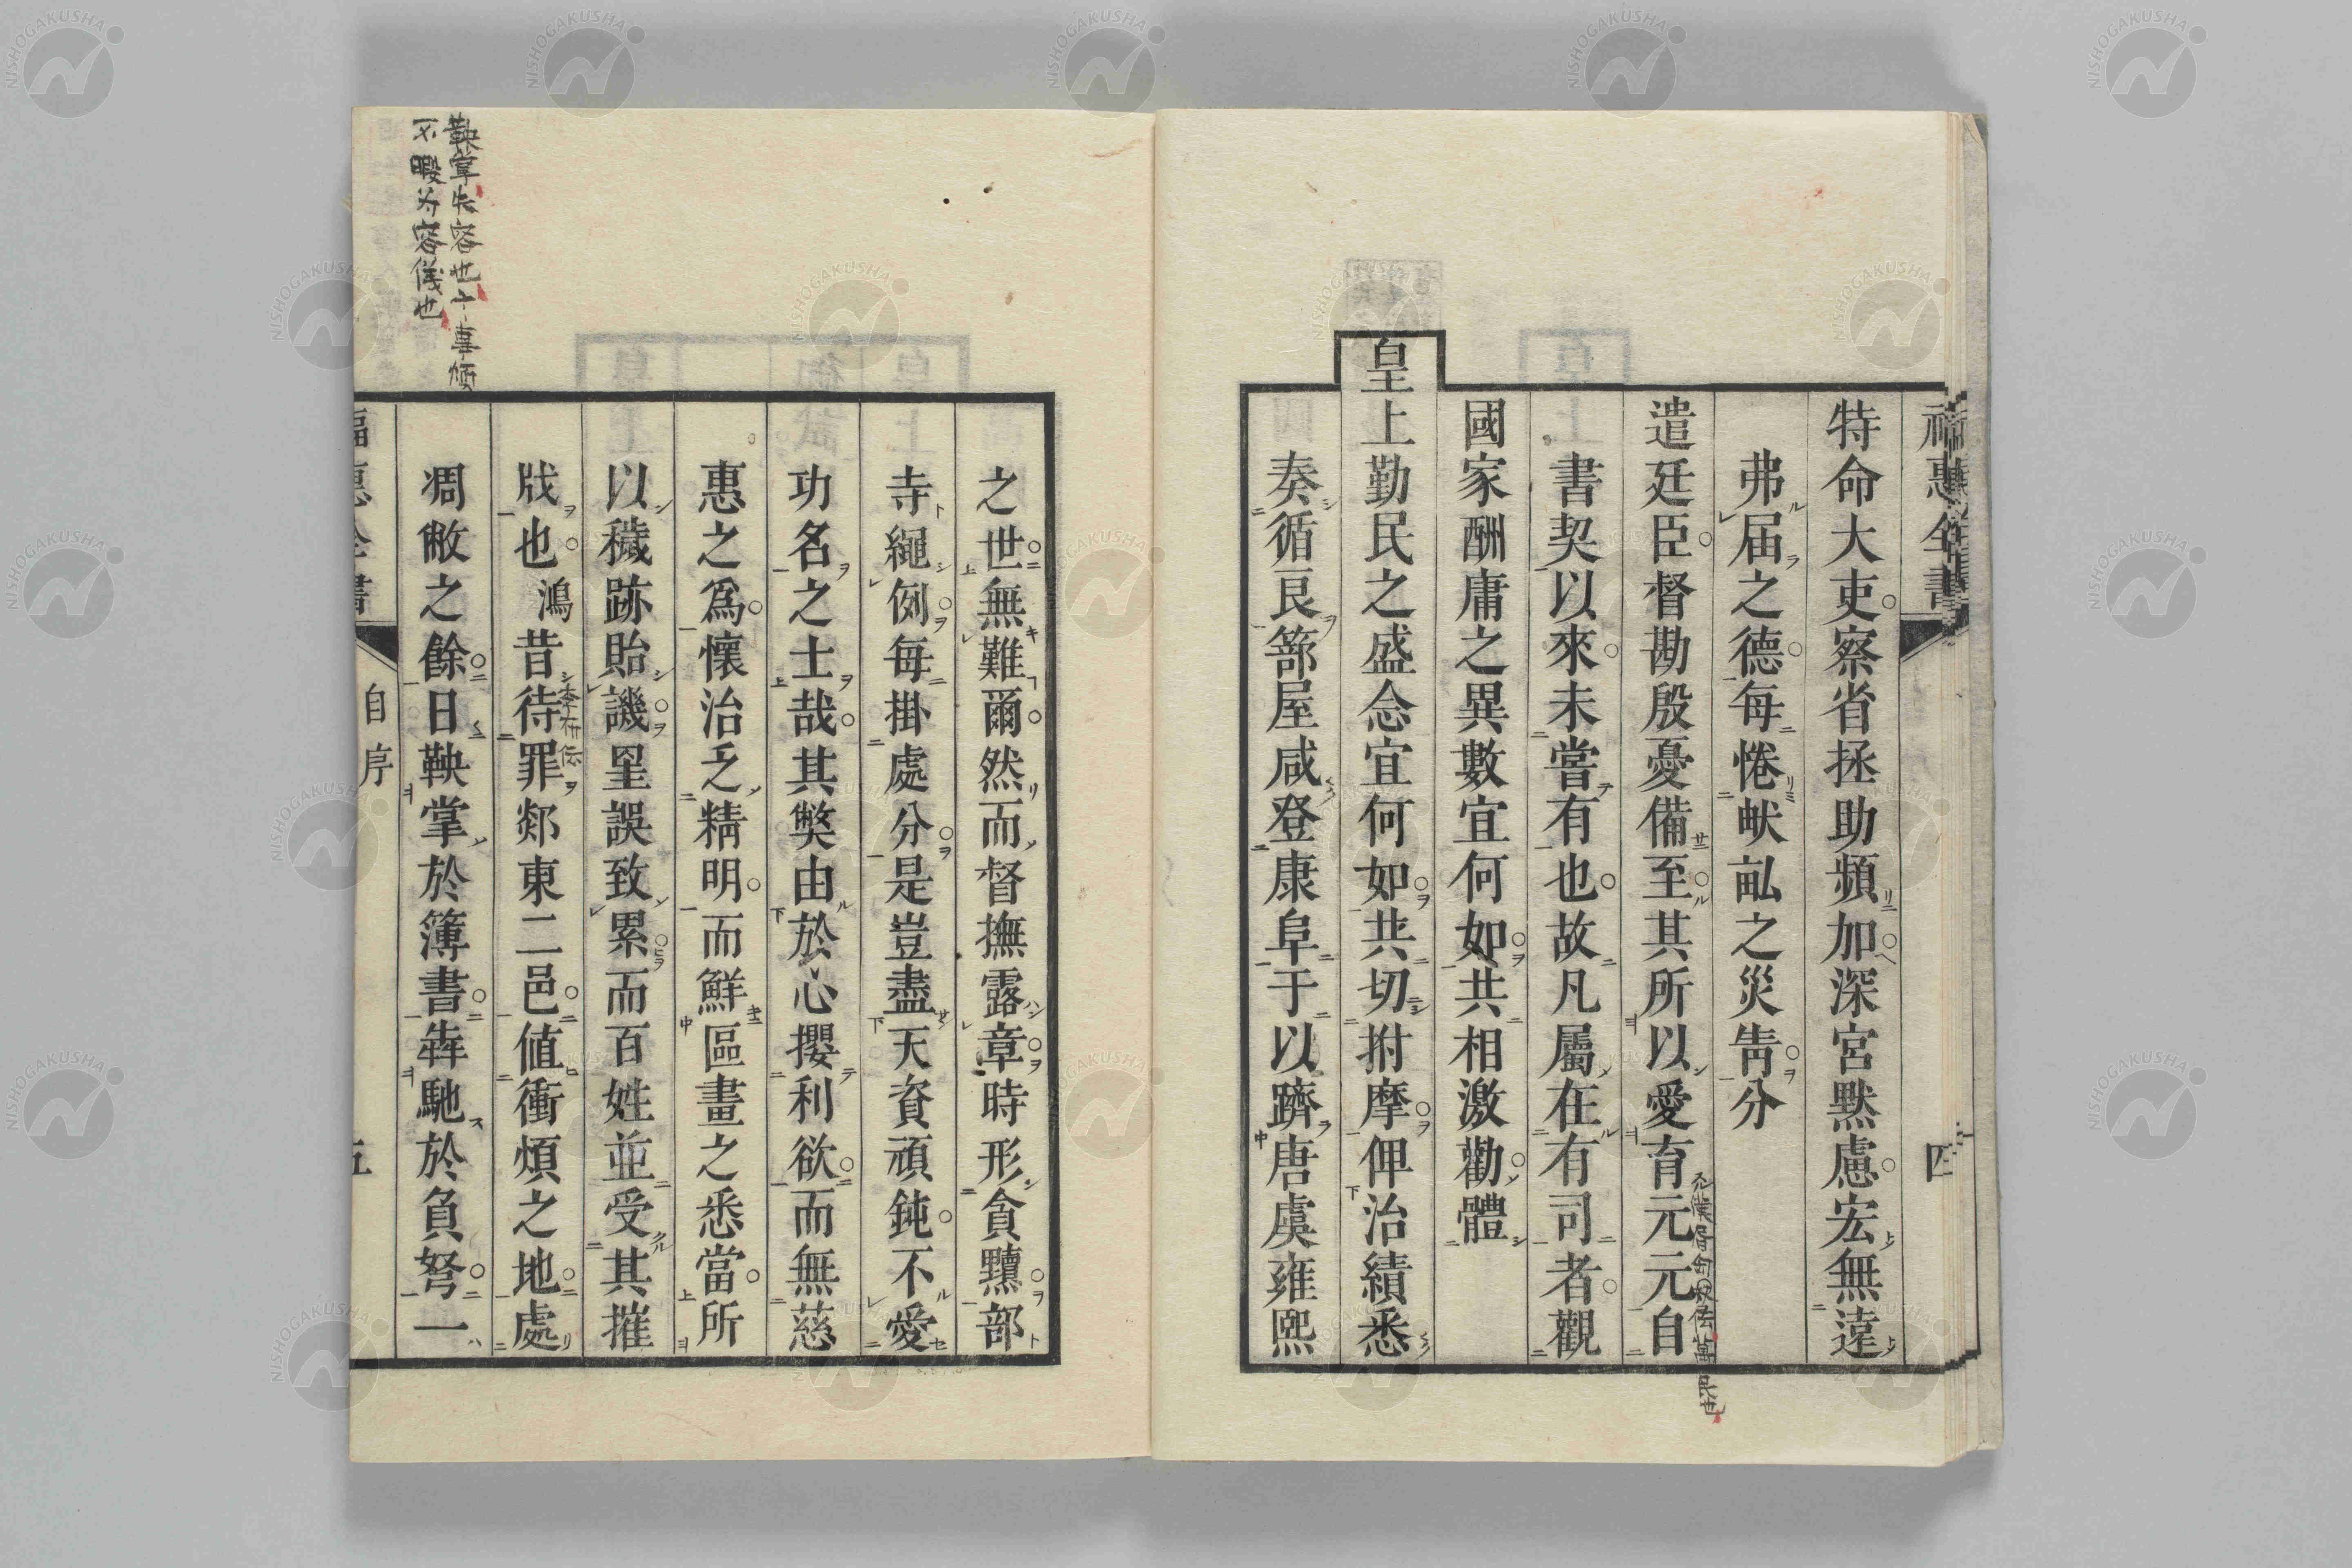 福惠全書
四
特命大吏察省拯助頻加深宮黙慮宏無遠
弗届之德每惓畎畝之災眚分
遣廷臣督勘殷憂備至其所以愛育元元自
書契以來未嘗有也故凡屬在有司者觀
國家酬庸之異數宜何如共相激勸體
皇上勤民之盛念宜何如共切拊摩俾治績悉
奏循艮蔀屋咸登康阜于以躋唐虞雍熙
之世無難爾然而督撫露章時形貪黷部
寺繩例每掛處分是豈盡天資頑鈍不愛
功名之士哉其獘由於心攖利欲而無慈
惠之爲懷治乏精明而鮮區畫之悉當所
以穢跡貽譏罣誤致累而百姓並受其摧
戕也鴻昔待罪郯東二邑値衝煩之地處
凋敝之餘日鞅掌於簿書犇馳於負弩一
福惠全書
自序
五
鞅掌失容也言事煩
不暇爲容儀也
NISHOGAKUSHA